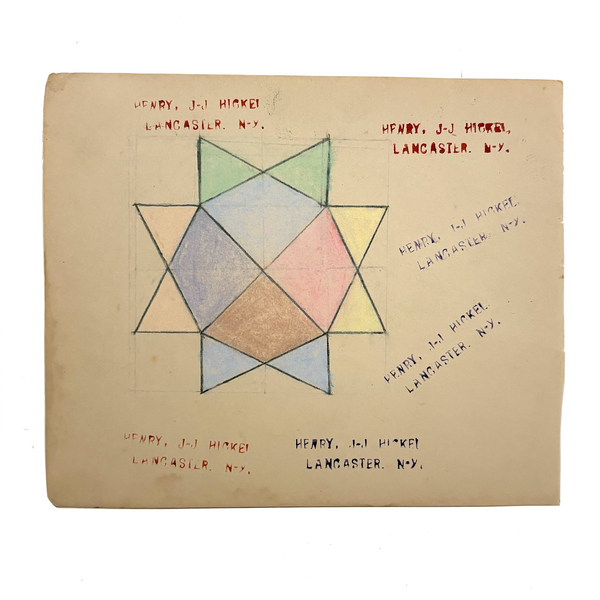 HENRY, J-J HICKEL
LANCASTER. N-Y.
HENRY, J-J HICKEL,
LANCASTER. N-Y.
HENRY, J-J HICKEL.
LANCASTER. N-Y.
HENRY, J-J HICKEL.
LANCASTER. N-Y.
HENRY, J-J HICKEL
LANCASTER. N-Y.
HENRY, J-J HICKEL
LANCASTER. N-Y.